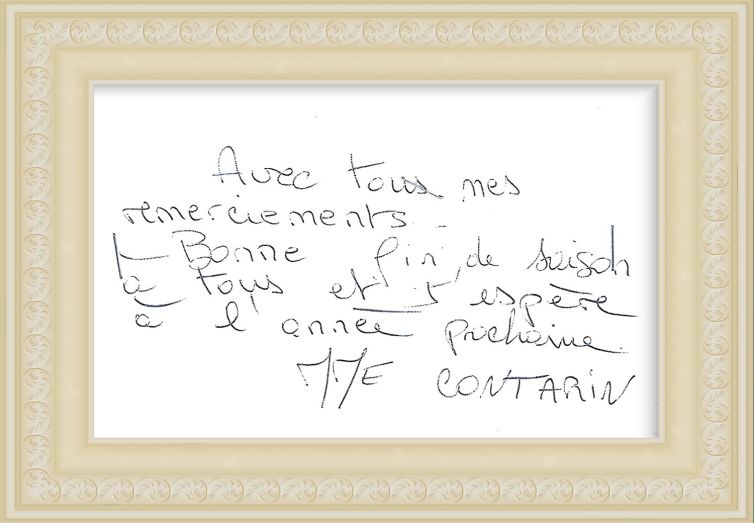 Avec tous mes
remerciements.
Bonne fin de saison
à tous et j'espère
à l'année prochaine.
MME CONTARIN